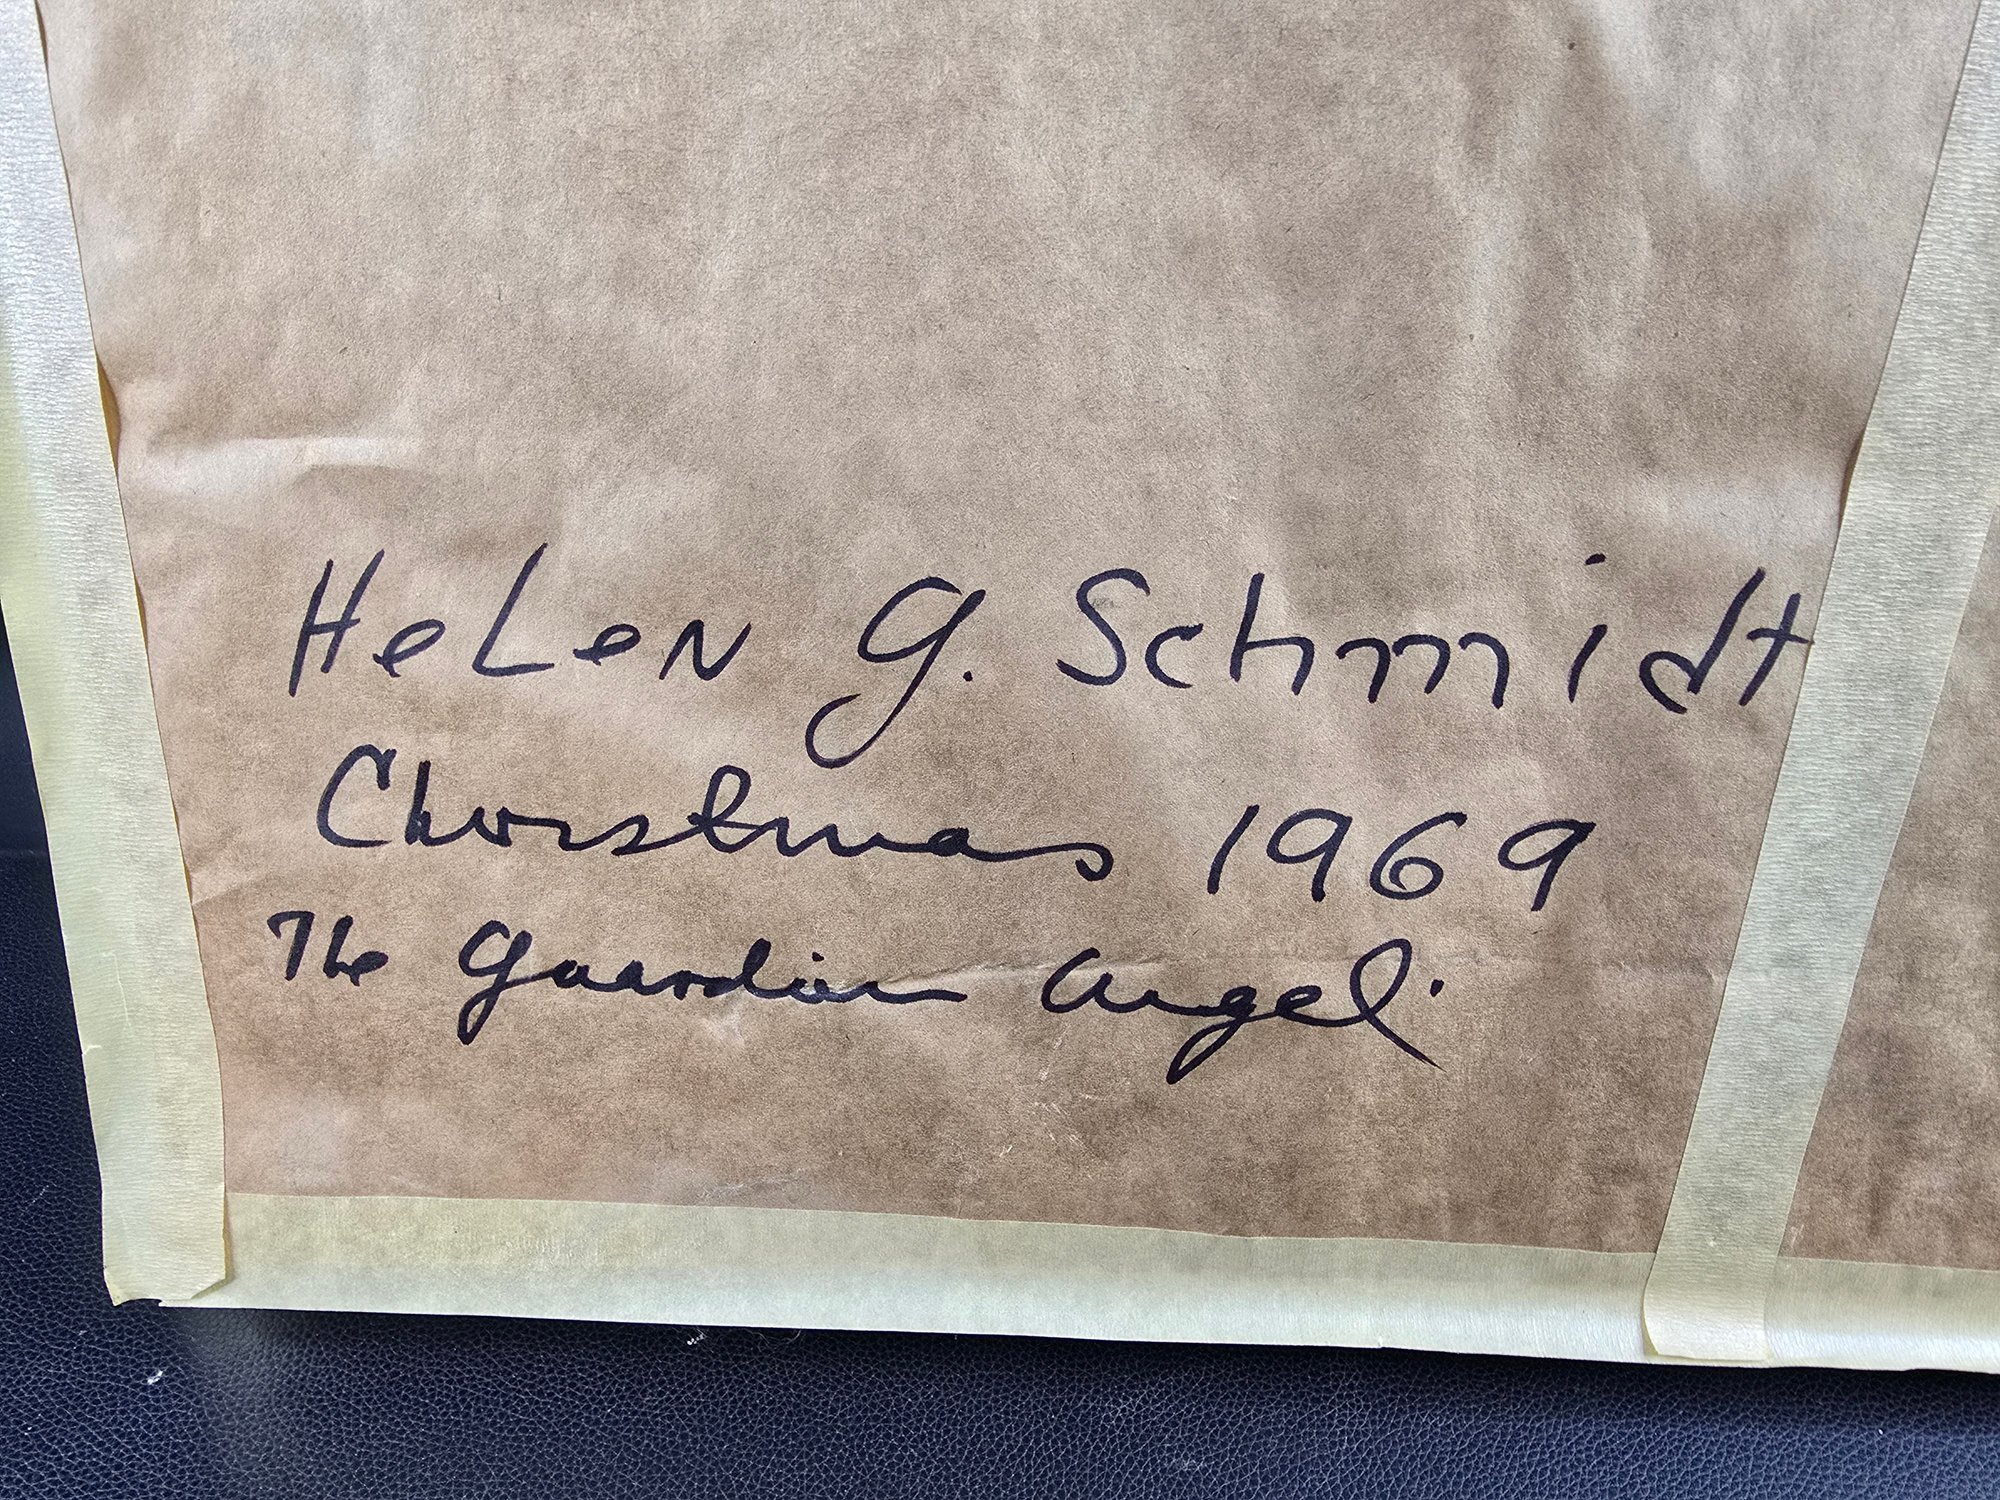 Helen G. Schmidt
Christmas 1969
The Guardian Angel.